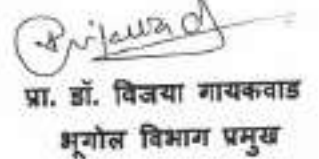 प्रा. डॉ. विजया गायकवाड
भूगोल विभाग प्रमुख